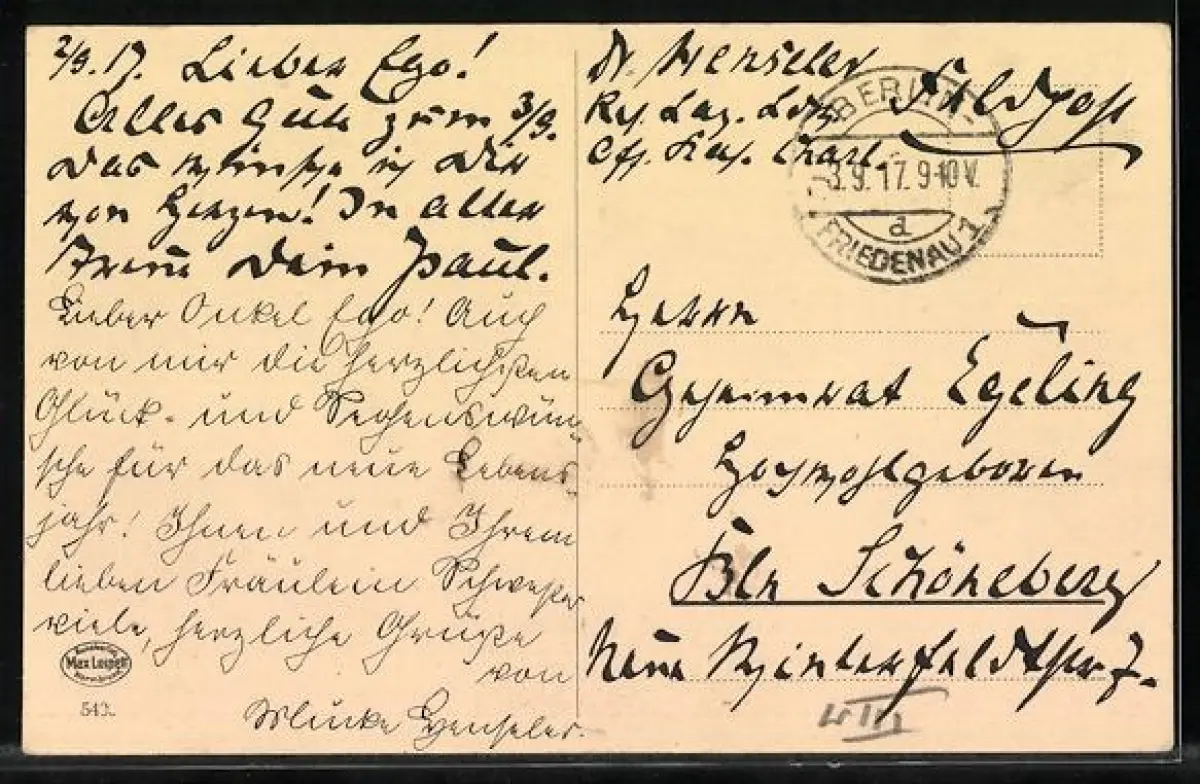 2/9.17. Lieber Ego!
Alles Gute zum 3/9.
Das wünsche ich Dir
von Herzen! In alter
Treue Dein Paul.
Lieber Onkel Ego! Auch
von mir die herzlichsten
Glück- und Segenswün-
sche für das neue Lebens-
jahr! Ihnen und Ihrem
lieben Fräulein Schwester
viele, herzliche Grüße
von
Mucke Henseler.
Max Leipelt
Warmbrunn
543.
Dr. Henseler
Res. Laz.
Feldpost
BERLIN-
3.9.17.9-10V.
d
FRIEDENAU 1
Herrn
Geheimrat Egeling
Hochwohlgeboren
Bln Schöneberg
Neue Winterfeldtstr 7.